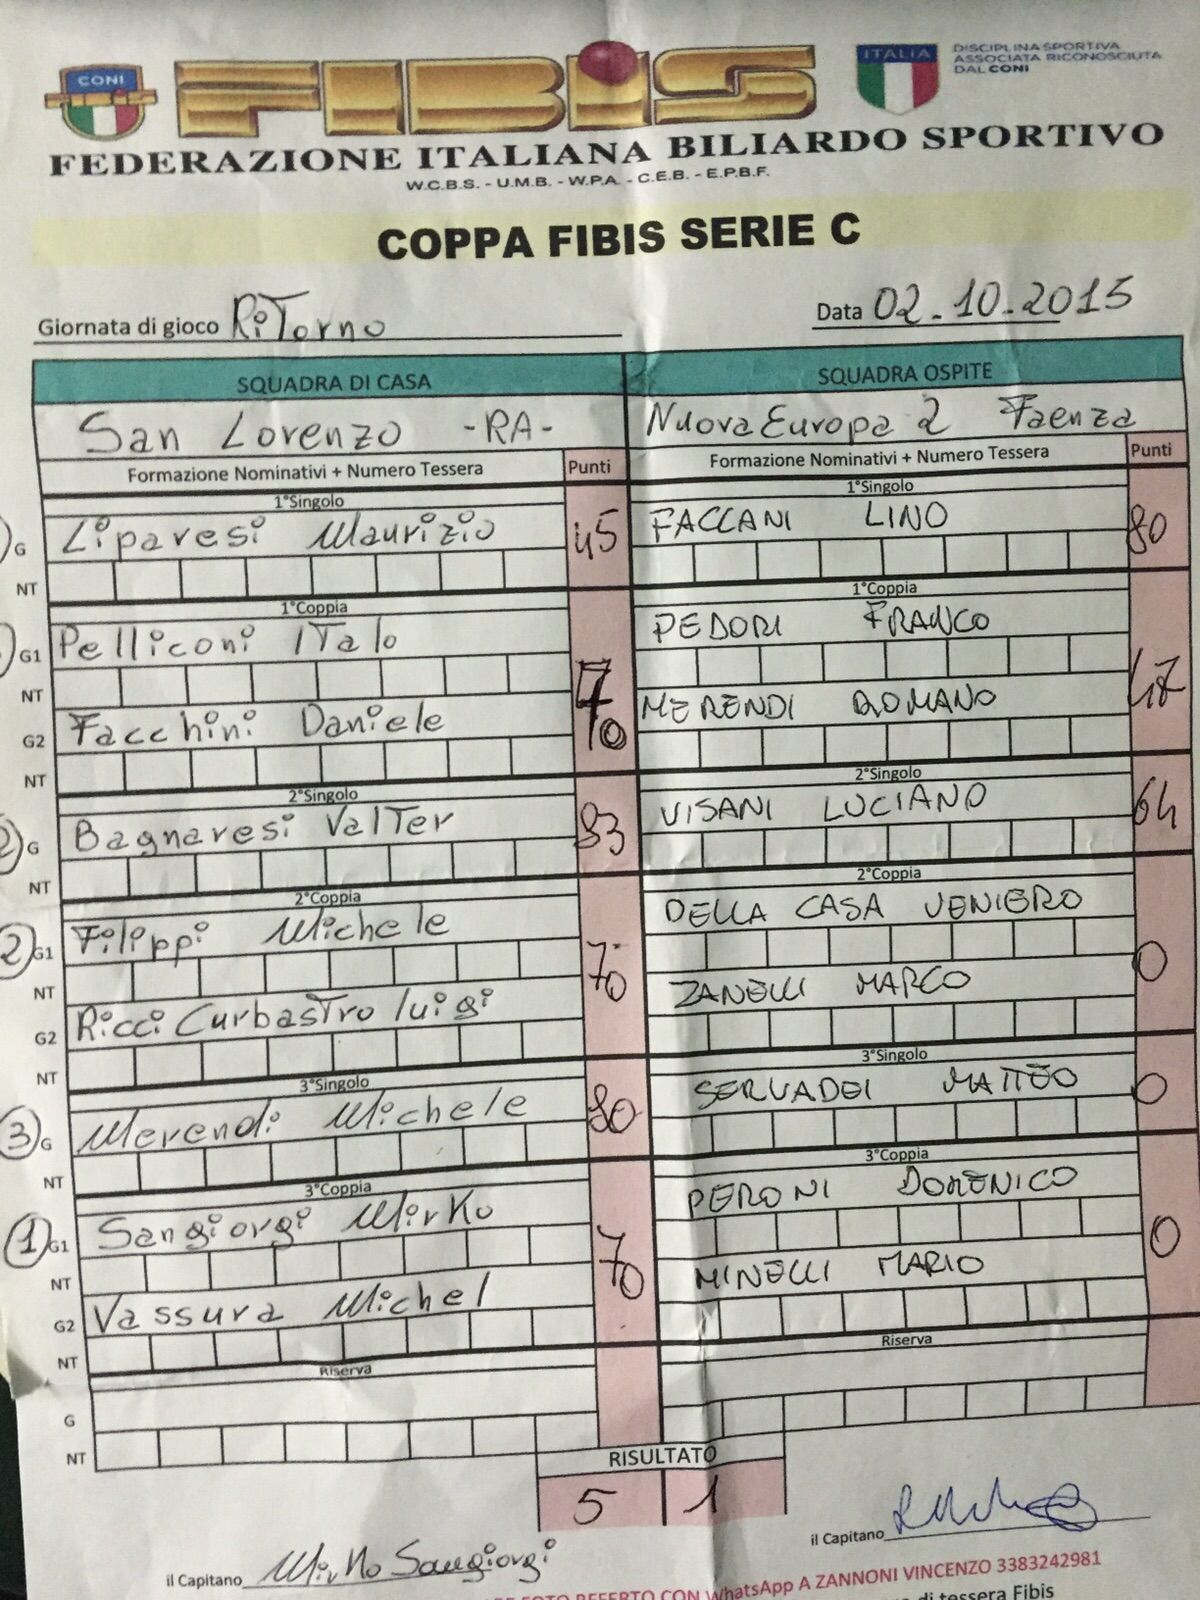 CONI
FIBIS
ITALIA
DISCIPLINA SPORTIVA
ASSOCIATA RICONOSCIUTA
DAL CONI
FEDERAZIONE ITALIANA BILIARDO SPORTIVO
W.C.B.S. - U.M.B. - W.P.A. - C.E.B. - E.P.B.F.
COPPA FIBIS SERIE C
Giornata di gioco RiTorno
Data 02-10-2015
SQUADRA DI CASA SQUADRA OSPITE
San Lorenzo -RA- Nuova Europa 2 Faenza
Formazione Nominativi + Numero Tessera Punti Formazione Nominativi + Numero Tessera Punti
1°Singolo 1°Singolo
G Liparesi Maurizio 45 FACCANI LINO 80
NT
1°Coppia 1°Coppia
G1 Pelliconi ITalo 70 PEDORI FRANCO 47
NT
G2 Facchini Daniele MERENDI ROMANO
NT
2°Singolo 2°Singolo
G Bagnaresi ValTer 83 VISANI LUCIANO 64
NT
2°Coppia 2°Coppia
2) G1 Filippi Michele 70 DELLA CASA VENIERO 0
NT
G2 Ricci CurbasTro luigi ZANELLI MARCO
NT
3°Singolo 3°Singolo
3) G Merendi Michele 80 SERVADEI MATTEO 0
NT
3°Coppia 3°Coppia
(1) G1 Sangiorgi MirKo 70 PERONI DOMENICO 0
NT
G2 Vassura Michel MINELLI MARIO
NT
Riserva Riserva
G
NT
RISULTATO
5 1
il Capitano Mirko Sangiorgi
il Capitano
FOTO REFERTO CON WhatsApp A ZANNONI VINCENZO 3383242981
di tessera Fibis